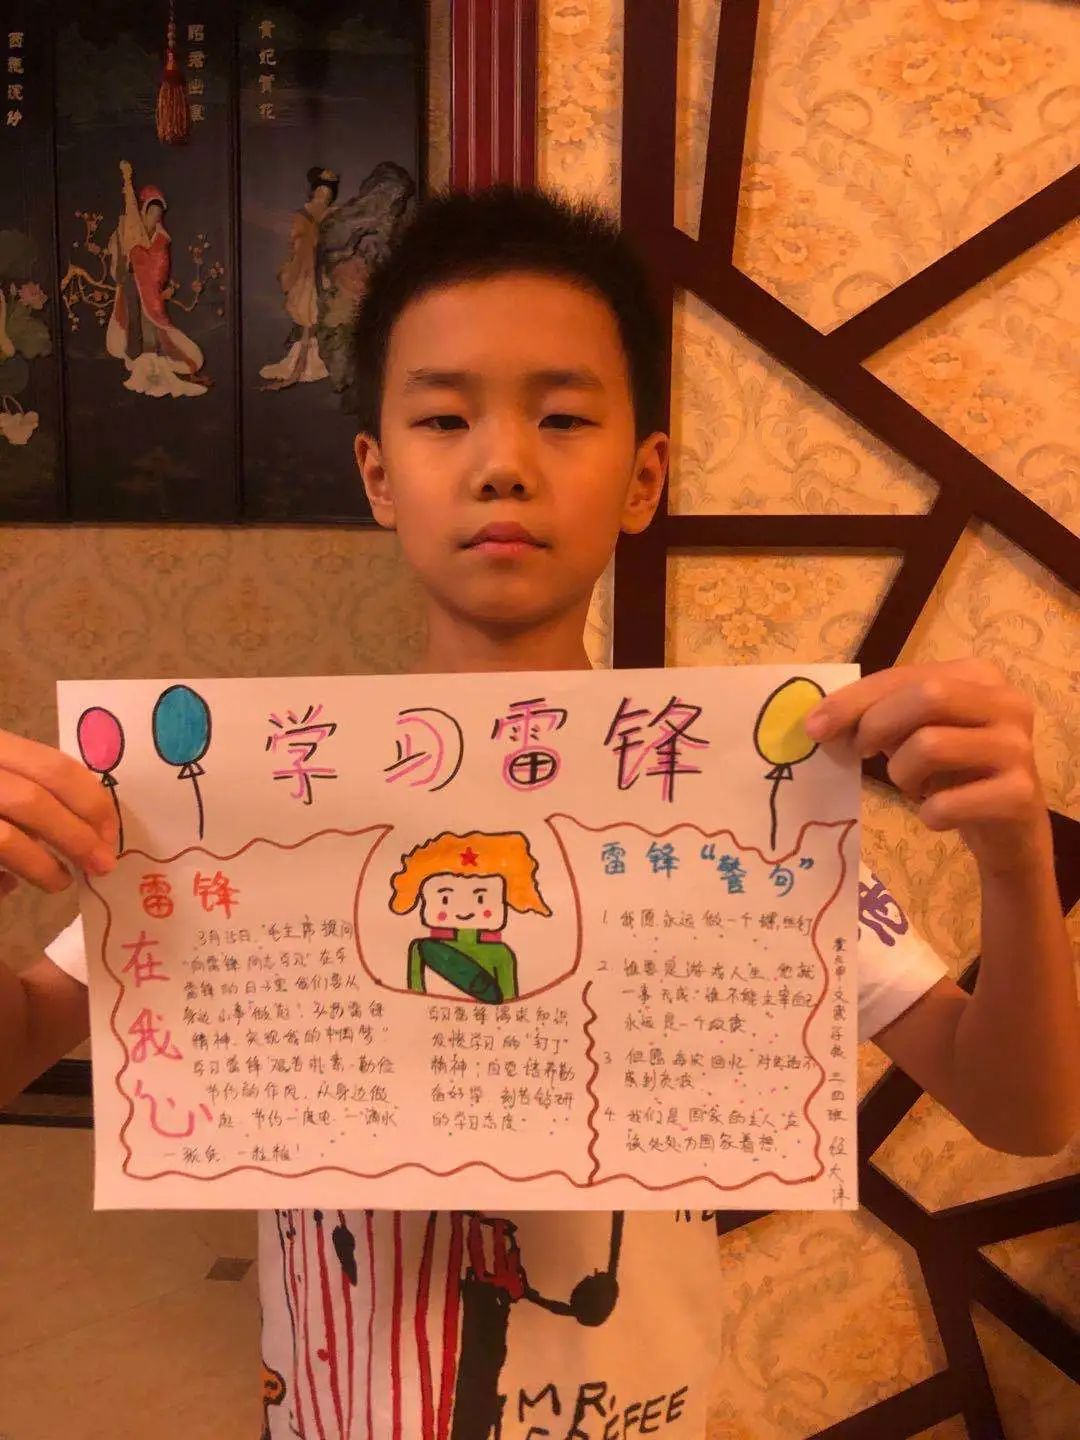 昭君出塞
贵妃赏花
学习雷锋
雷锋
在我心
3月15日，"毛主席提问
"向雷锋同志学习"在车
雷锋的日子里我们要从
身边小事"做起"；弘扬雷锋
精神，实现我的中国梦"
学习雷锋"艰苦朴素，勤俭
节约的作风，从身边做
起，节约一度电、一滴水
一张纸、一粒粮！
学习雷锋渴求知识
发愤学习的"钉子"
精神；
在好学，刻苦钻研
的学习态度
雷锋"警句"
1. 我愿永远做一个螺丝钉
2. 谁要是游戏人生，他就
一事无成；谁不能主宰自己
永远是一个奴隶
3. 但愿每次回忆，对生活不
感到负疚
4. 我们是国家的主人，应
该处处为国家着想
三四班
MR.
COFFEE